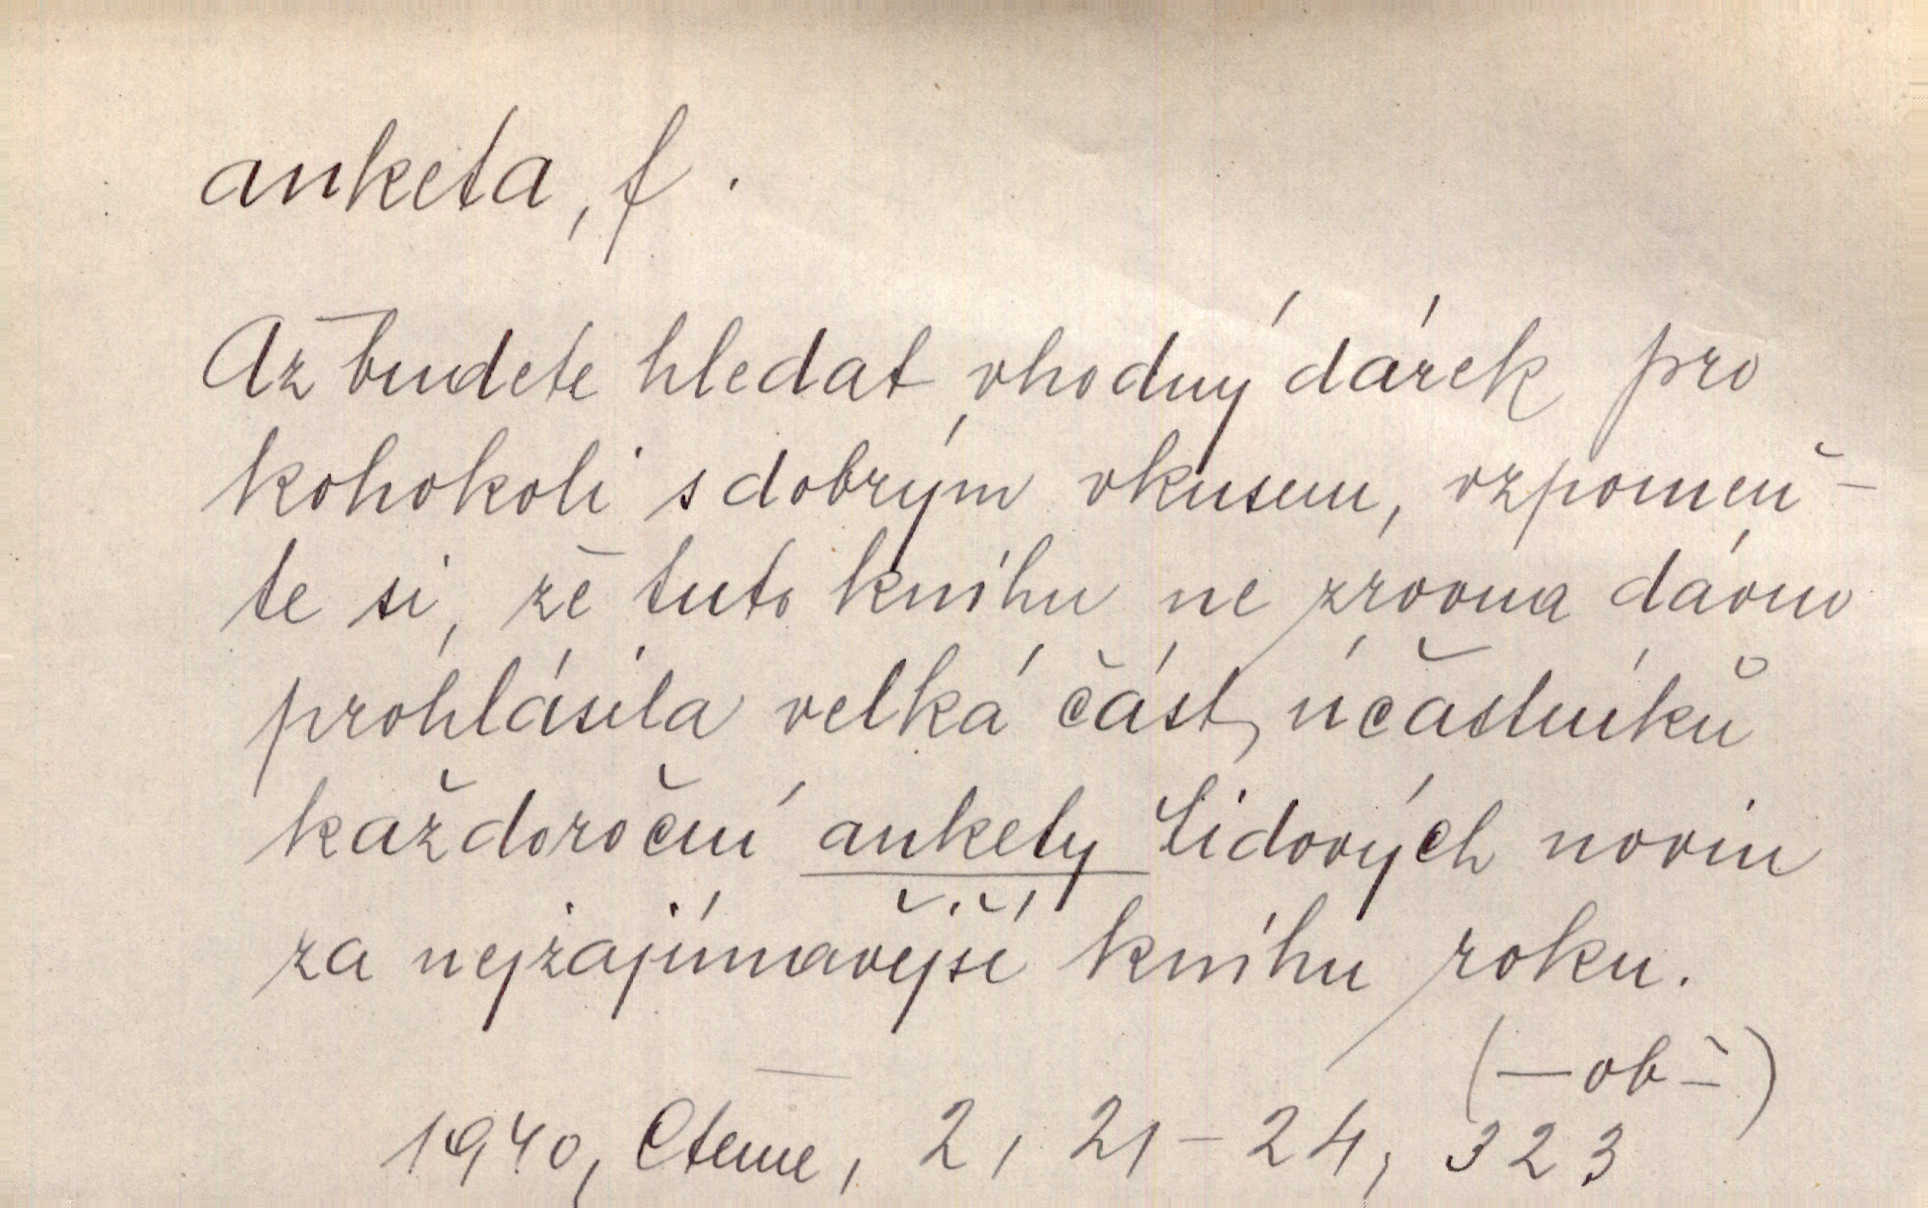 anketa, f.
Až budete hledat vhodný dárek pro
kohokoli s dobrým vkusem, vzpomeň-
te si, že tuto knihu ne zrovna dávno
prohlásila velká část účastníků
každoroční ankety Lidových novin
za nejzajímavější knihu roku.
(—ob–)
1940, Čteme, 2, 21–24, 323